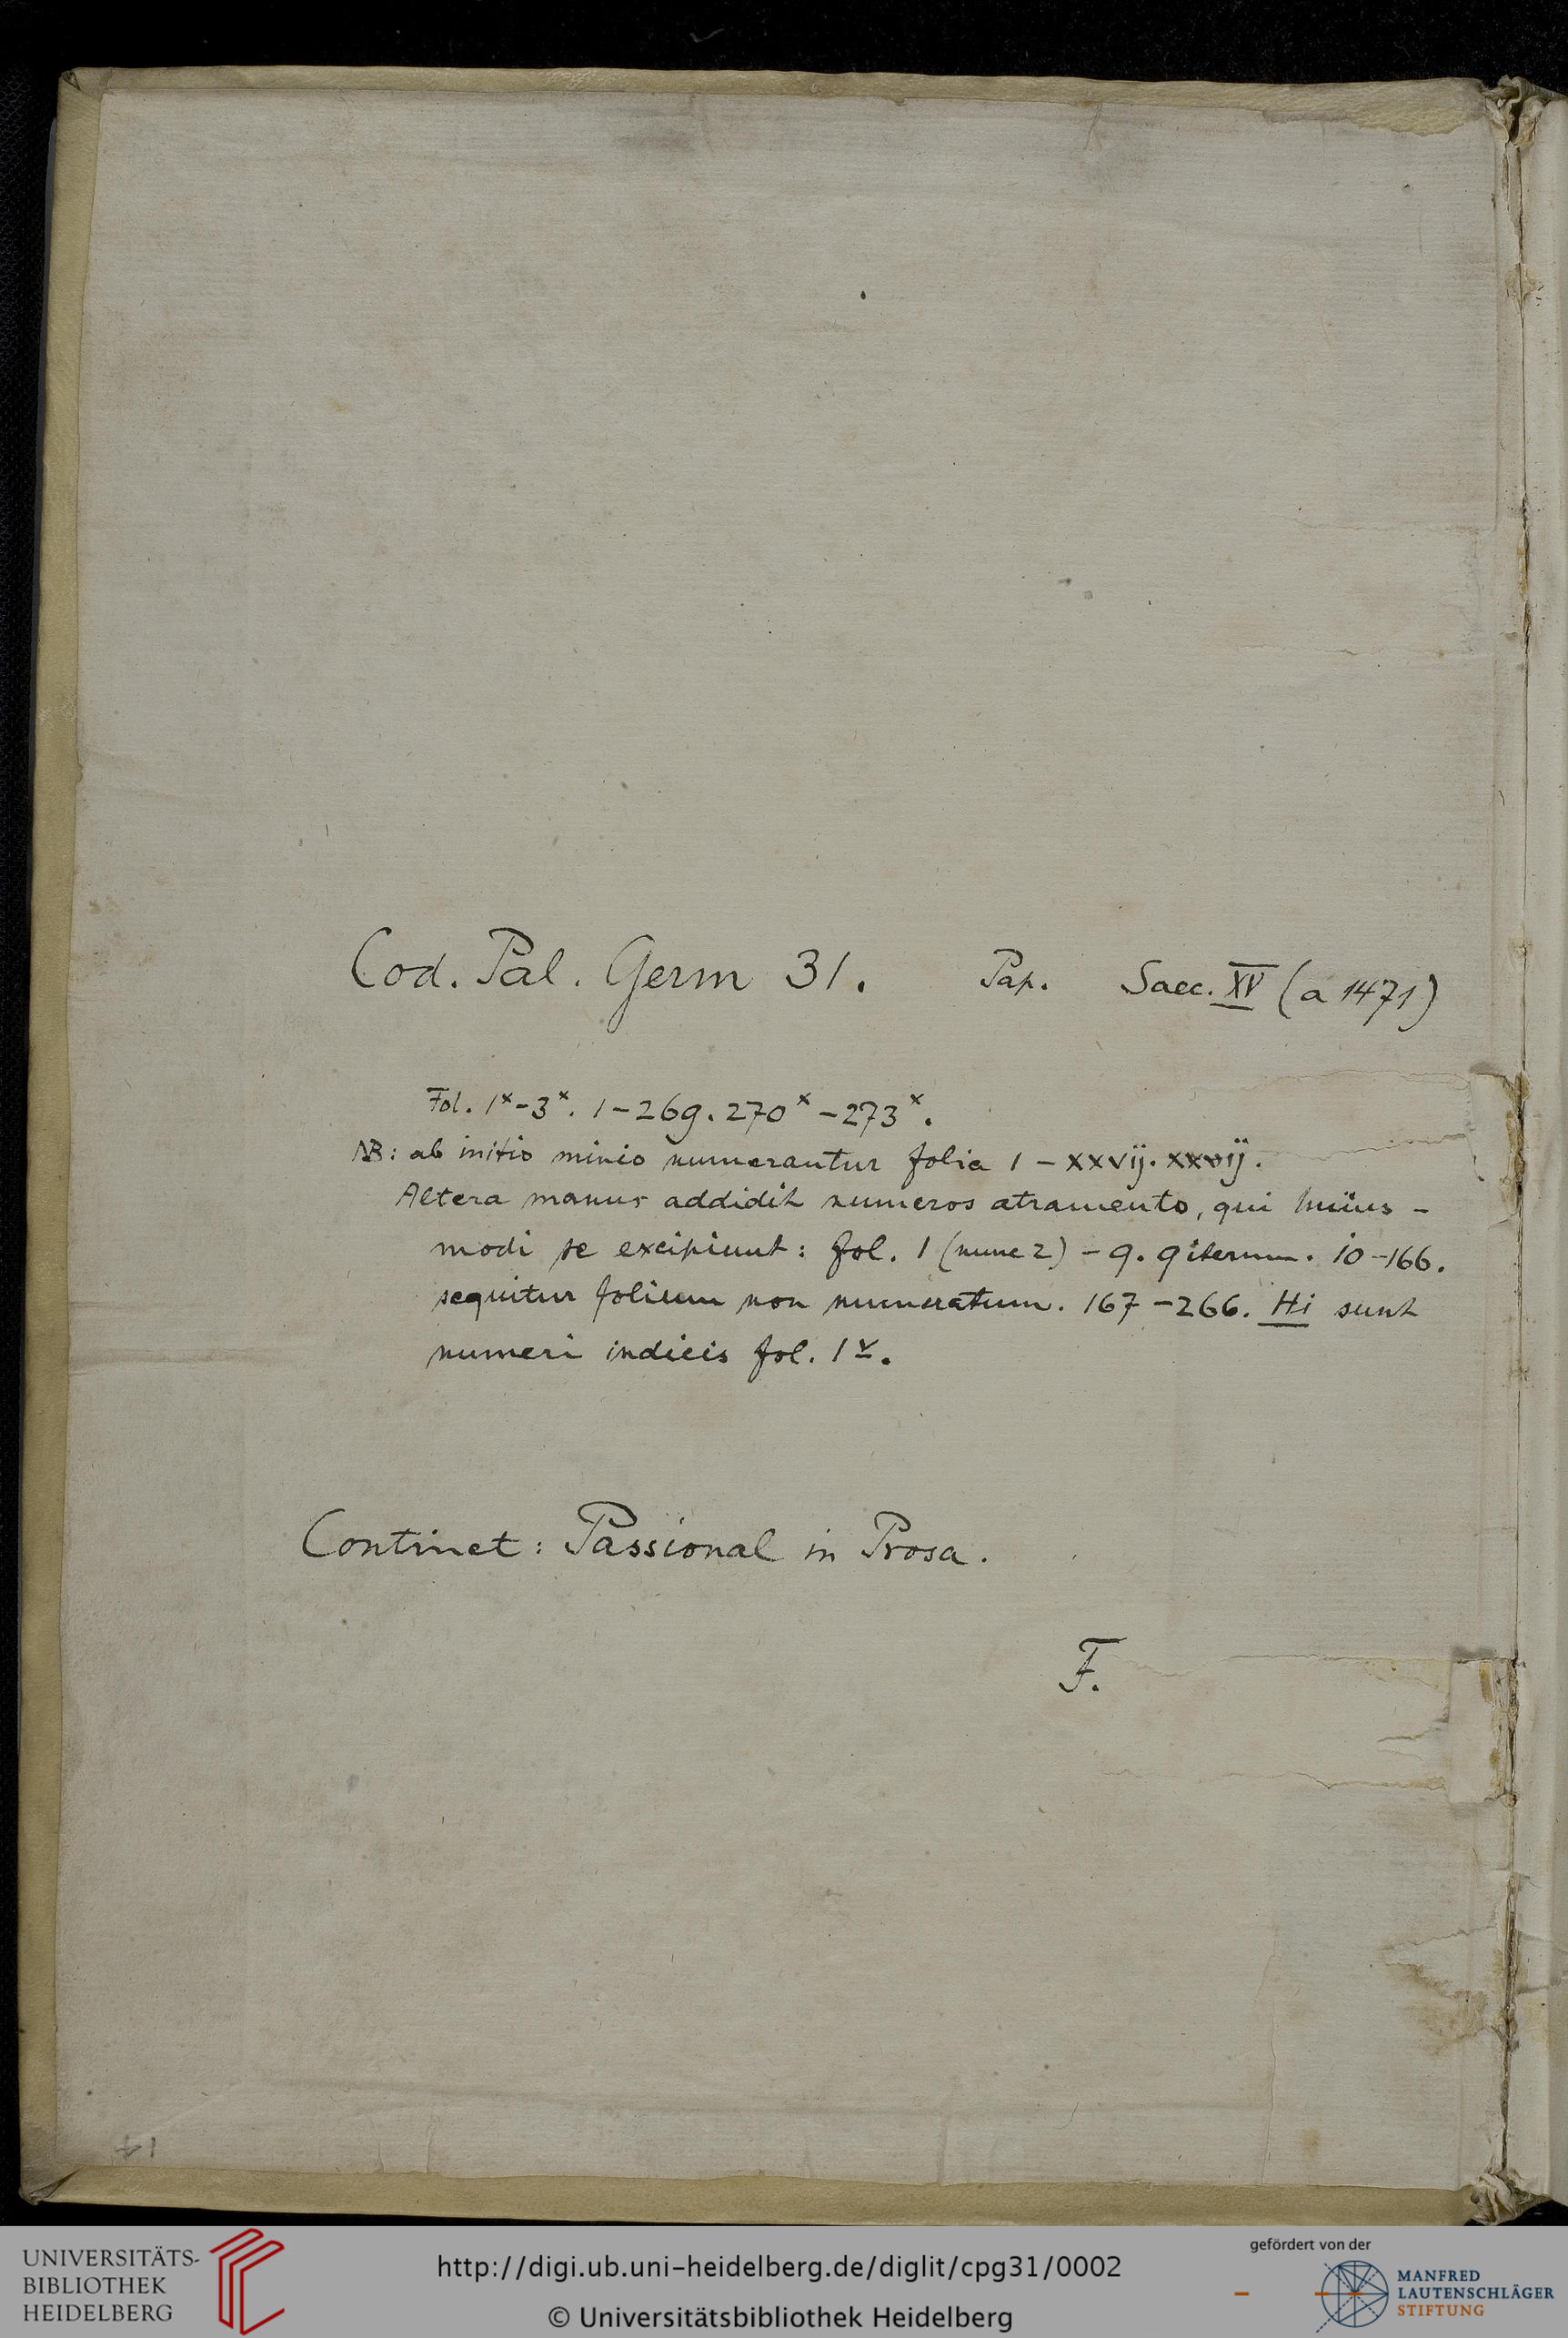 Cod. Pal. Germ 31. Pap. Saec. XV (a 1471)
Fol. 1x-3x. 1-269. 270x-273x.
NB: ab initio minio numerantur folia 1 - xxvij. xxvij.
Altera manus addidit numeros atramento, qui huius-
modi se excipiunt: fol. 1 (nunc 2) - 9. 9 iterum. 10-166.
sequitur folium non numeratum. 167-266. Hi sunt
numeri indicis fol. 1v.
Continet: Passional in Prosa.
F.
UNIVERSITÄTS-
BIBLIOTHEK
HEIDELBERG
http://digi.ub.uni-heidelberg.de/diglit/cpg31/0002
© Universitätsbibliothek Heidelberg
gefördert von der
MANFRED
LAUTENSCHLÄGER
STIFTUNG